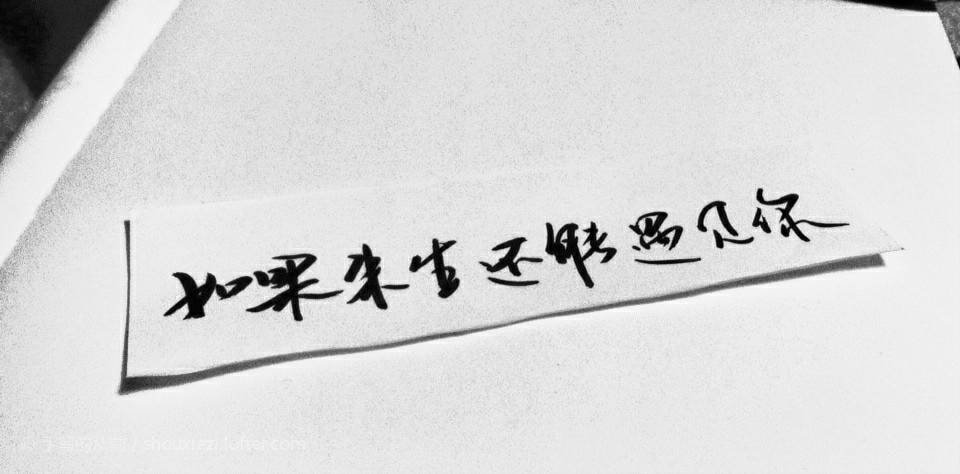 如果来生还能遇见你
shouxiezi.lofter.com